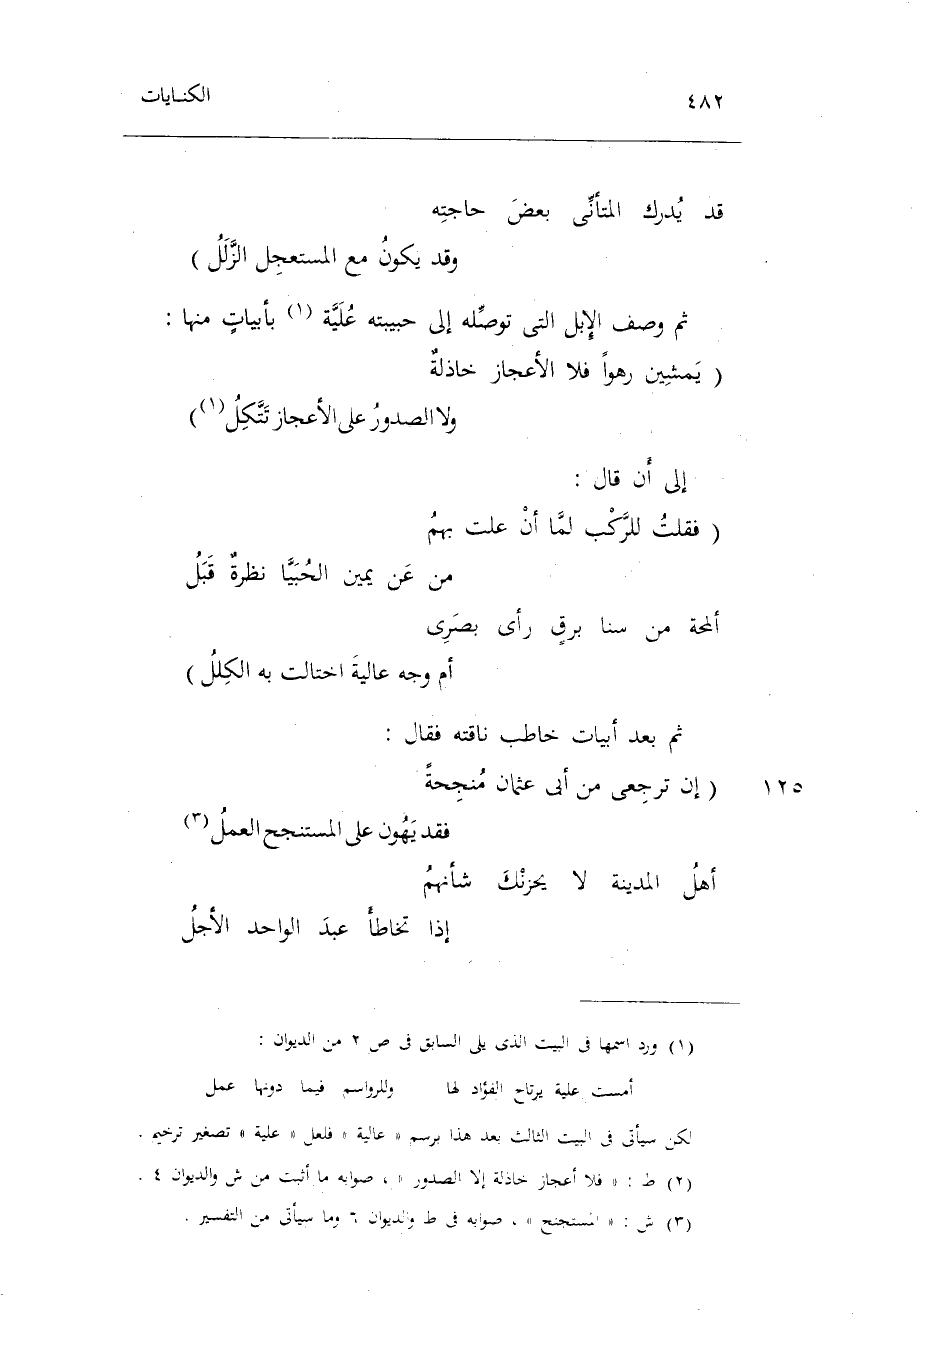 ٤٨٢ الكنايات
قد يُدرك المتأنِّى بعضَ حاجتِه
وقد يكونُ مع المستعجِل الزَّلَلُ )
ثم وصف الإِبل التى توصِّله إلى حبيبته عُلَيَّة (١) بأبياتٍ منها :
( يَمشِين رهواً فلا الأعجاز خاذلةٌ
ولا الصدورُ على الأعجاز تَتَّكِلُ (١) )
إلى أَن قال :
( فقلتُ للرَّكْب لمَّا أنْ علت بهمُ
من عَن يمين الحُبَيَّا نظرةٌ قَبَلُ
ألمحة من سنا برقٍ رأى بصَرِى
أم وجه عاليةَ اختالت به الكِللُ )
ثم بعد أبيات خاطب ناقته فقال :
١٢٥ ( إن ترجِعى من أبى عثمان مُنجِحةً
فقد يَهُون على المستنجح العملُ (٣)
أهلُ المدينة لا يحزنْكَ شأنهمُ
إذا تخاطأَ عبدَ الواحد الأجلُ
(١) ورد اسمها فى البيت الذى يلى السابق فى ص ٢ من الديوان :
أمست علية يرتاح الفؤاد لها وللرواسم فيما دونها عمل
لكن سيأتى فى البيت الثالث بعد هذا برسم « عالية » فلعل « علية » تصغير ترخيم .
(٢) ط : « فلا أعجاز خاذلة إلا الصدور » ، صوابه ما أثبت من ش والديوان ٤ .
(٣) ش : « المستجنح » ، صوابه فى ط والديوان ٦ وما سيأتى من التفسير .